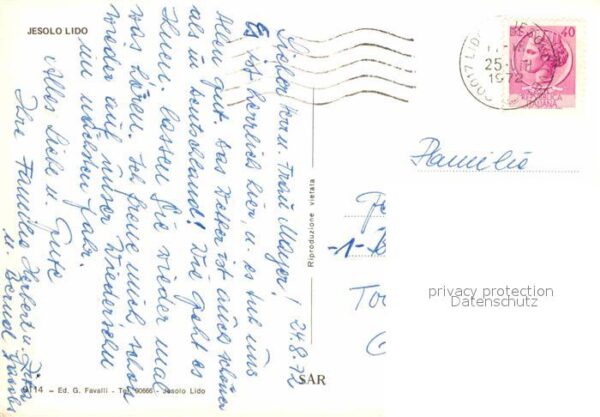 JESOLO LIDO
24.8.72
Lieber Herr u. Frau Mayer!
Es ist herrlich hier, u. es tut uns
allen gut. Das Wetter ist auch schöner
als in Deutschland! Wie geht es
Ihnen? lassen Sie wieder mal
was hören. Ich freue mich schon
wieder auf unser Wiedersehn
im nächsten Jahr.
Alles Liebe u. Gute
Ihre Familie Herbert u.
u. Bernd
14 – Ed. G. Favalli - Tel. 90666 - Jesolo Lido
Riproduzione vietata
SAR
40
REPUBBLICA
ITALIANA
30017 LIDO
25
1972
Familie
-1-
privacy protection
Datenschutz